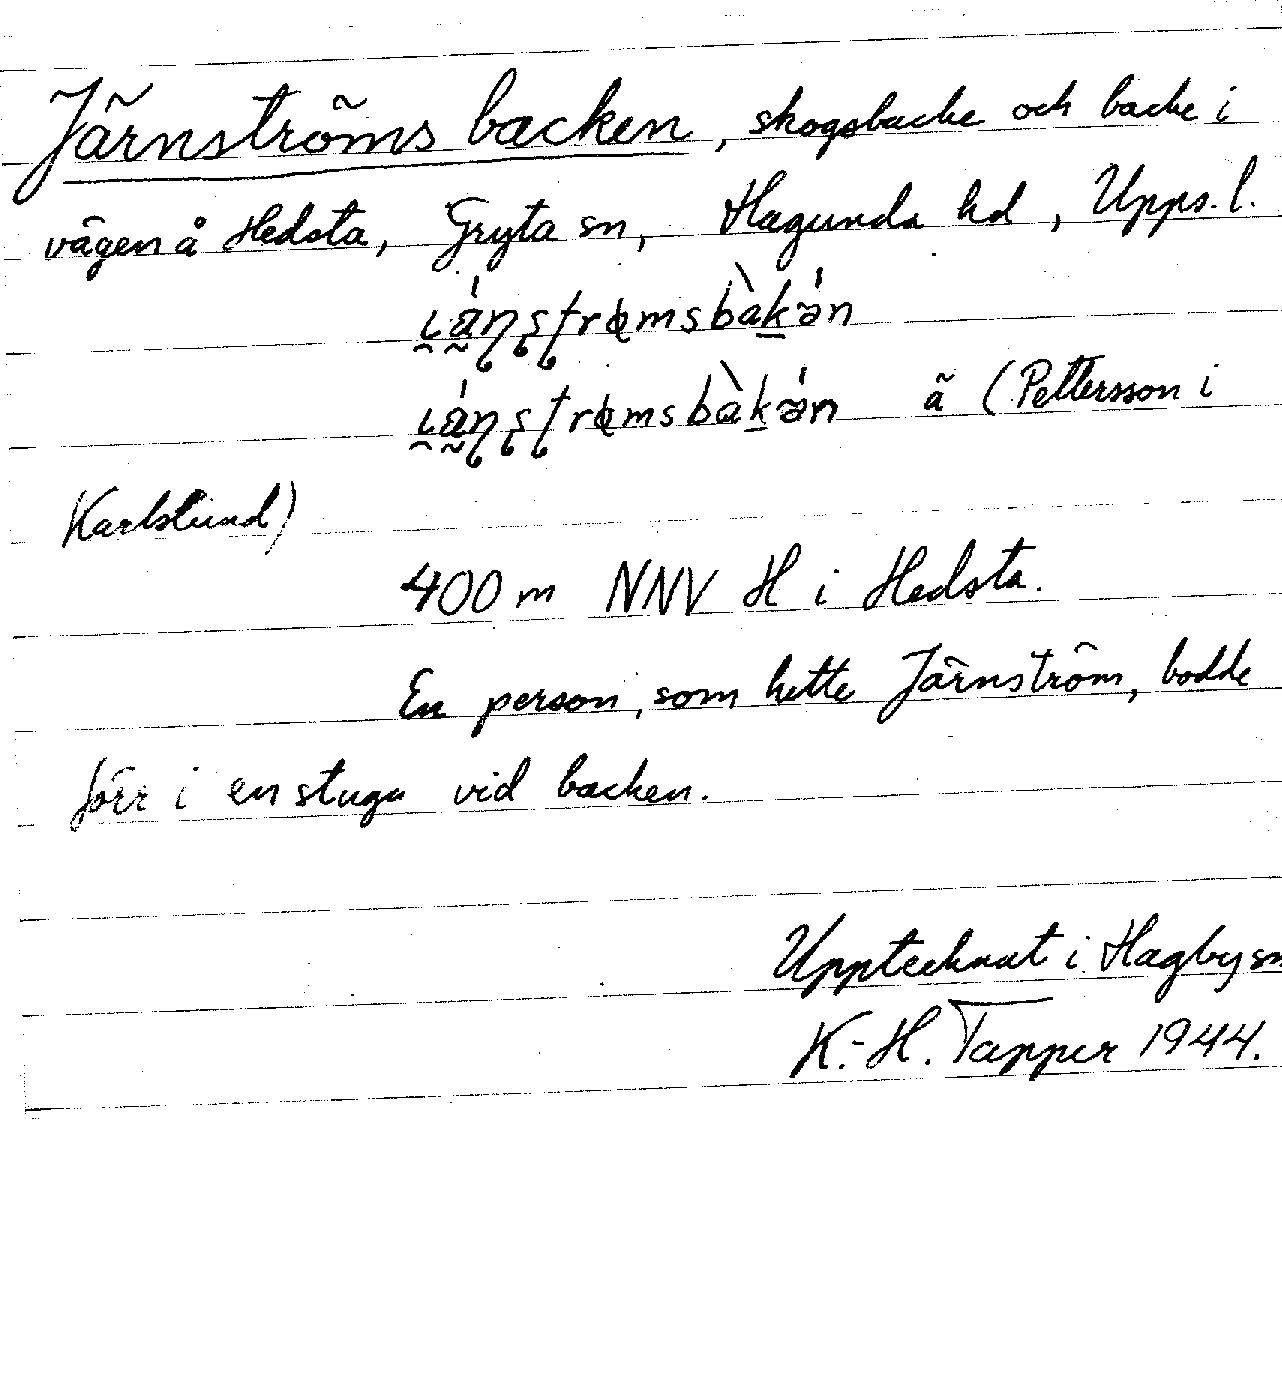 Järnströms backen, skogsbacke och backe i
vägen å Hedsta, Gryta sn, Hagunda hd, Upps. l.
ä (Pettersson i
Karlslund)
400 m NNV H i Hedsta.
En person, som hette Järnström, bodde
förr i en stuga vid backen.
Upptecknat i Hagby sn
K.-H. Tapper 1944.